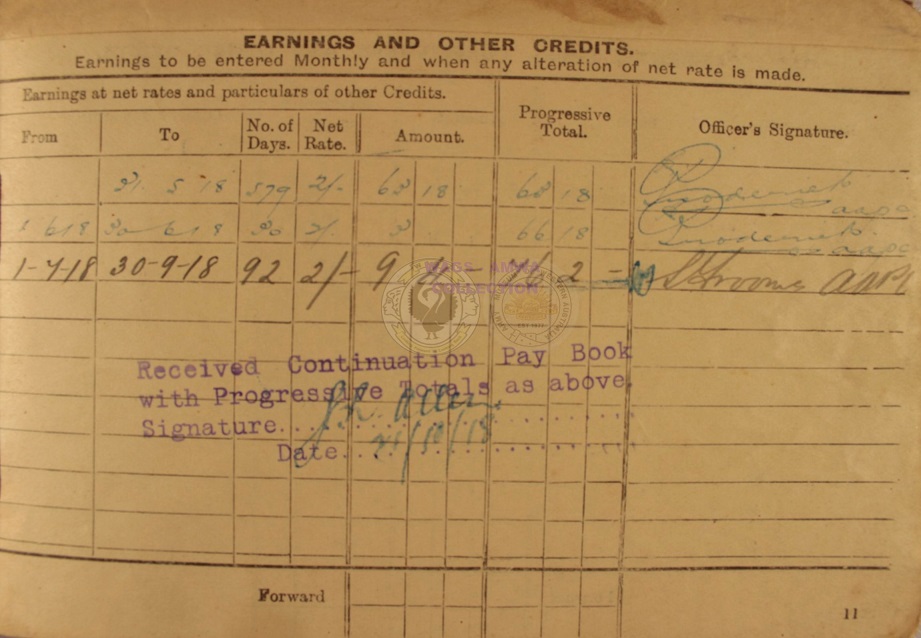 EARNINGS AND OTHER CREDITS.
Earnings to be entered Monthly and when any alteration of net rate is made.
Earnings at net rates and particulars of other Credits.
Progressive Total.
Officer's Signature.
From To No. of Days. Net Rate. Amount.
31 5 18 579 2/- 63 18 63 18
1 6 18 30 6 18 30 2/- 3 66 18
aapc
1-7-18 30-9-18 92 2/- 9 4 - 2
COLLECTION
Received Continuation Pay Book
with Progressive Totals as above.
Signature
Date 21/10/18
Forward
11